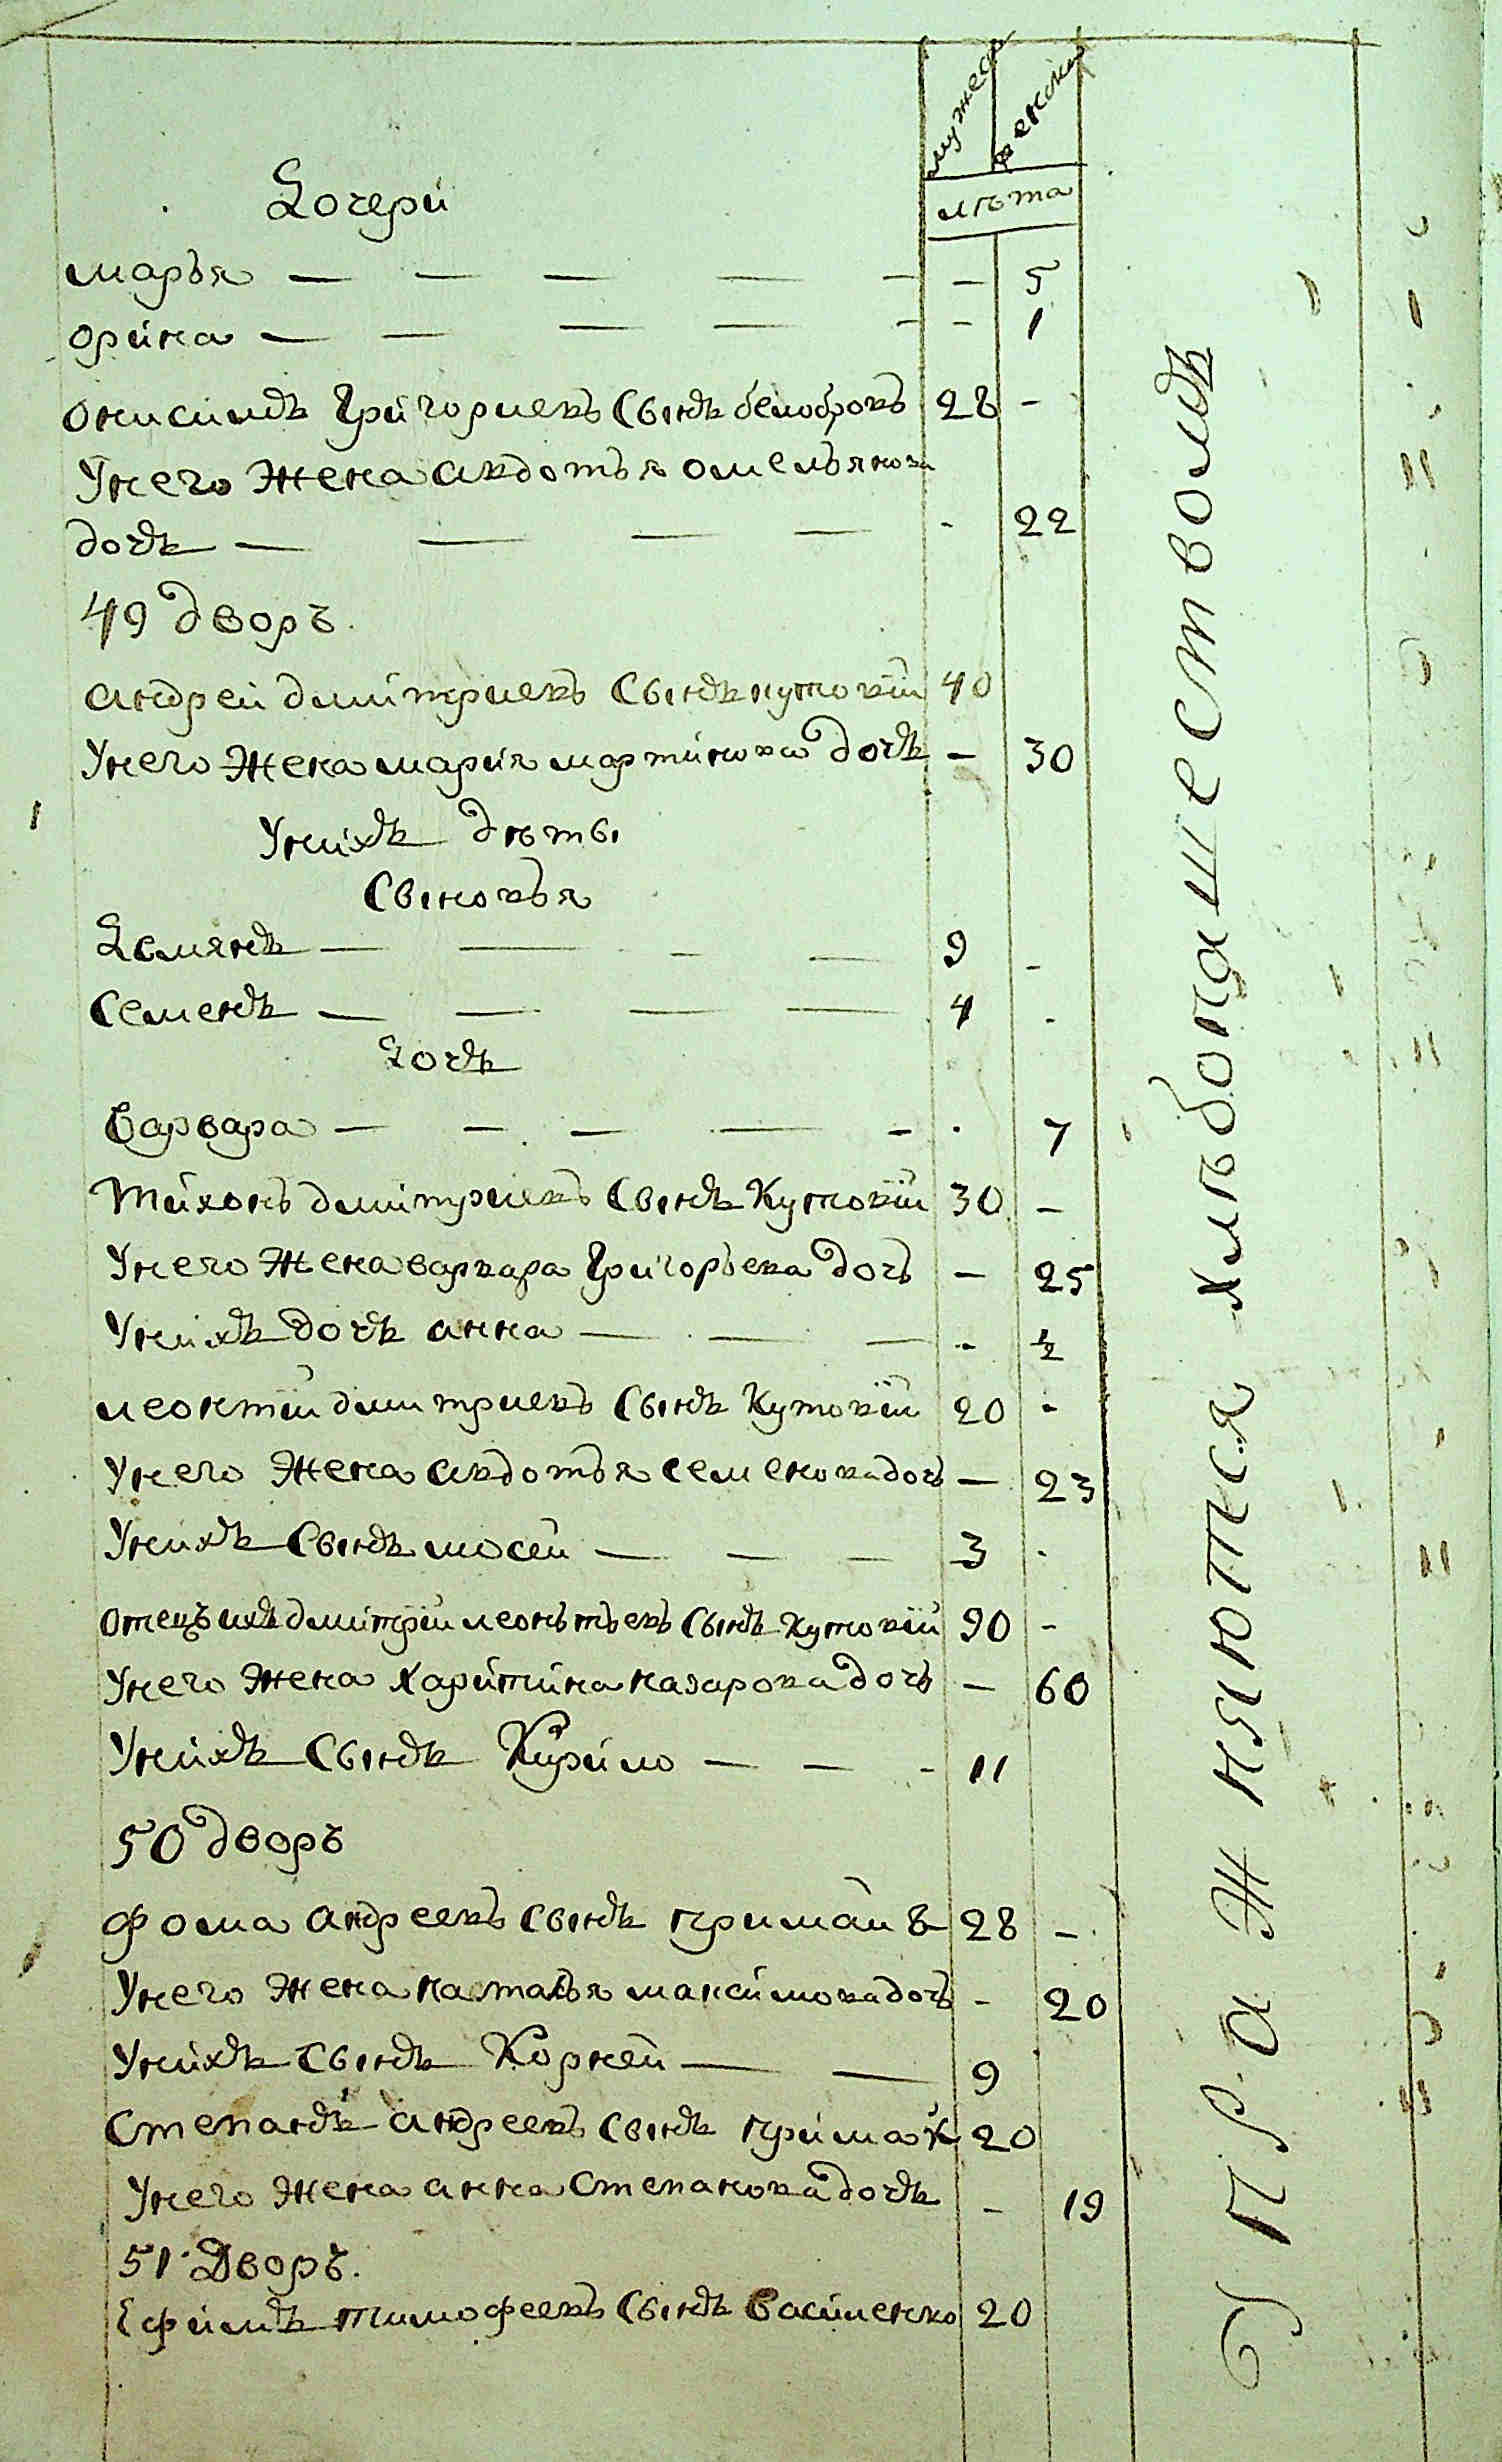 мужеска женска
лѣта
Дочери
марья — — — — — — 5
орина — — — — — — 1
онисимъ Григориевъ сынъ белобровъ 28 -
У него жена авдотья омельянова
дочь — — — — - 22
49 дворъ.
андрей дмитриевъ сынъ кутовїй 40
У него жена мария мартинова дочь — 30
У нихъ дѣты
Сыновья
Демянъ — — - — 9 -
Семенъ — — — — 4 -
Дочь
Варвара — — — — - - 7
Тихонъ дмитриевъ сынъ Кутовїй 30 -
У него жена варвара Григорьева дочь — 25
У нихъ дочь анна — — — - ½
леонтїй дмитриевъ сынъ Кутовїй 20 -
У него жена авдотья семенова дочь — 23
У нихъ сынъ мосей — — — 3 -
отецъ ихъ дмитрїй леонътьевъ сынъ кутовїй 90 -
У него жена харитина назарова дочь — 60
У нихъ сынъ Кирило — — - 11
50 дворъ
Фома андреевъ сынъ примакъ 28 -
У него жена наталья максимова дочь - 20
У нихъ сынъ Корней — — 9
Степанъ андреевъ сынъ примак 20
У него жена анна степанова дочь - 19
51 Дворъ.
Ефимъ тимофеевъ сынъ василенко 20
Упражняются хлѣбопашествомъ